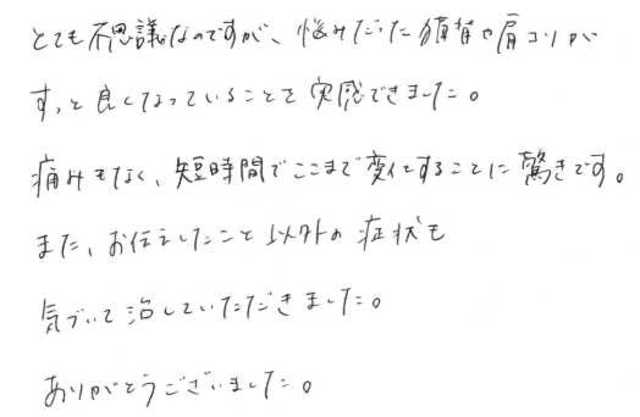 とても不思議なのですが、悩みだった猫背や肩コリが
すっと良くなっていることを実感できました。
痛みもなく、短時間でここまで変化することに驚きです。
また、お伝えしたこと以外の症状も
気づいて治していただきました。
ありがとうございました。